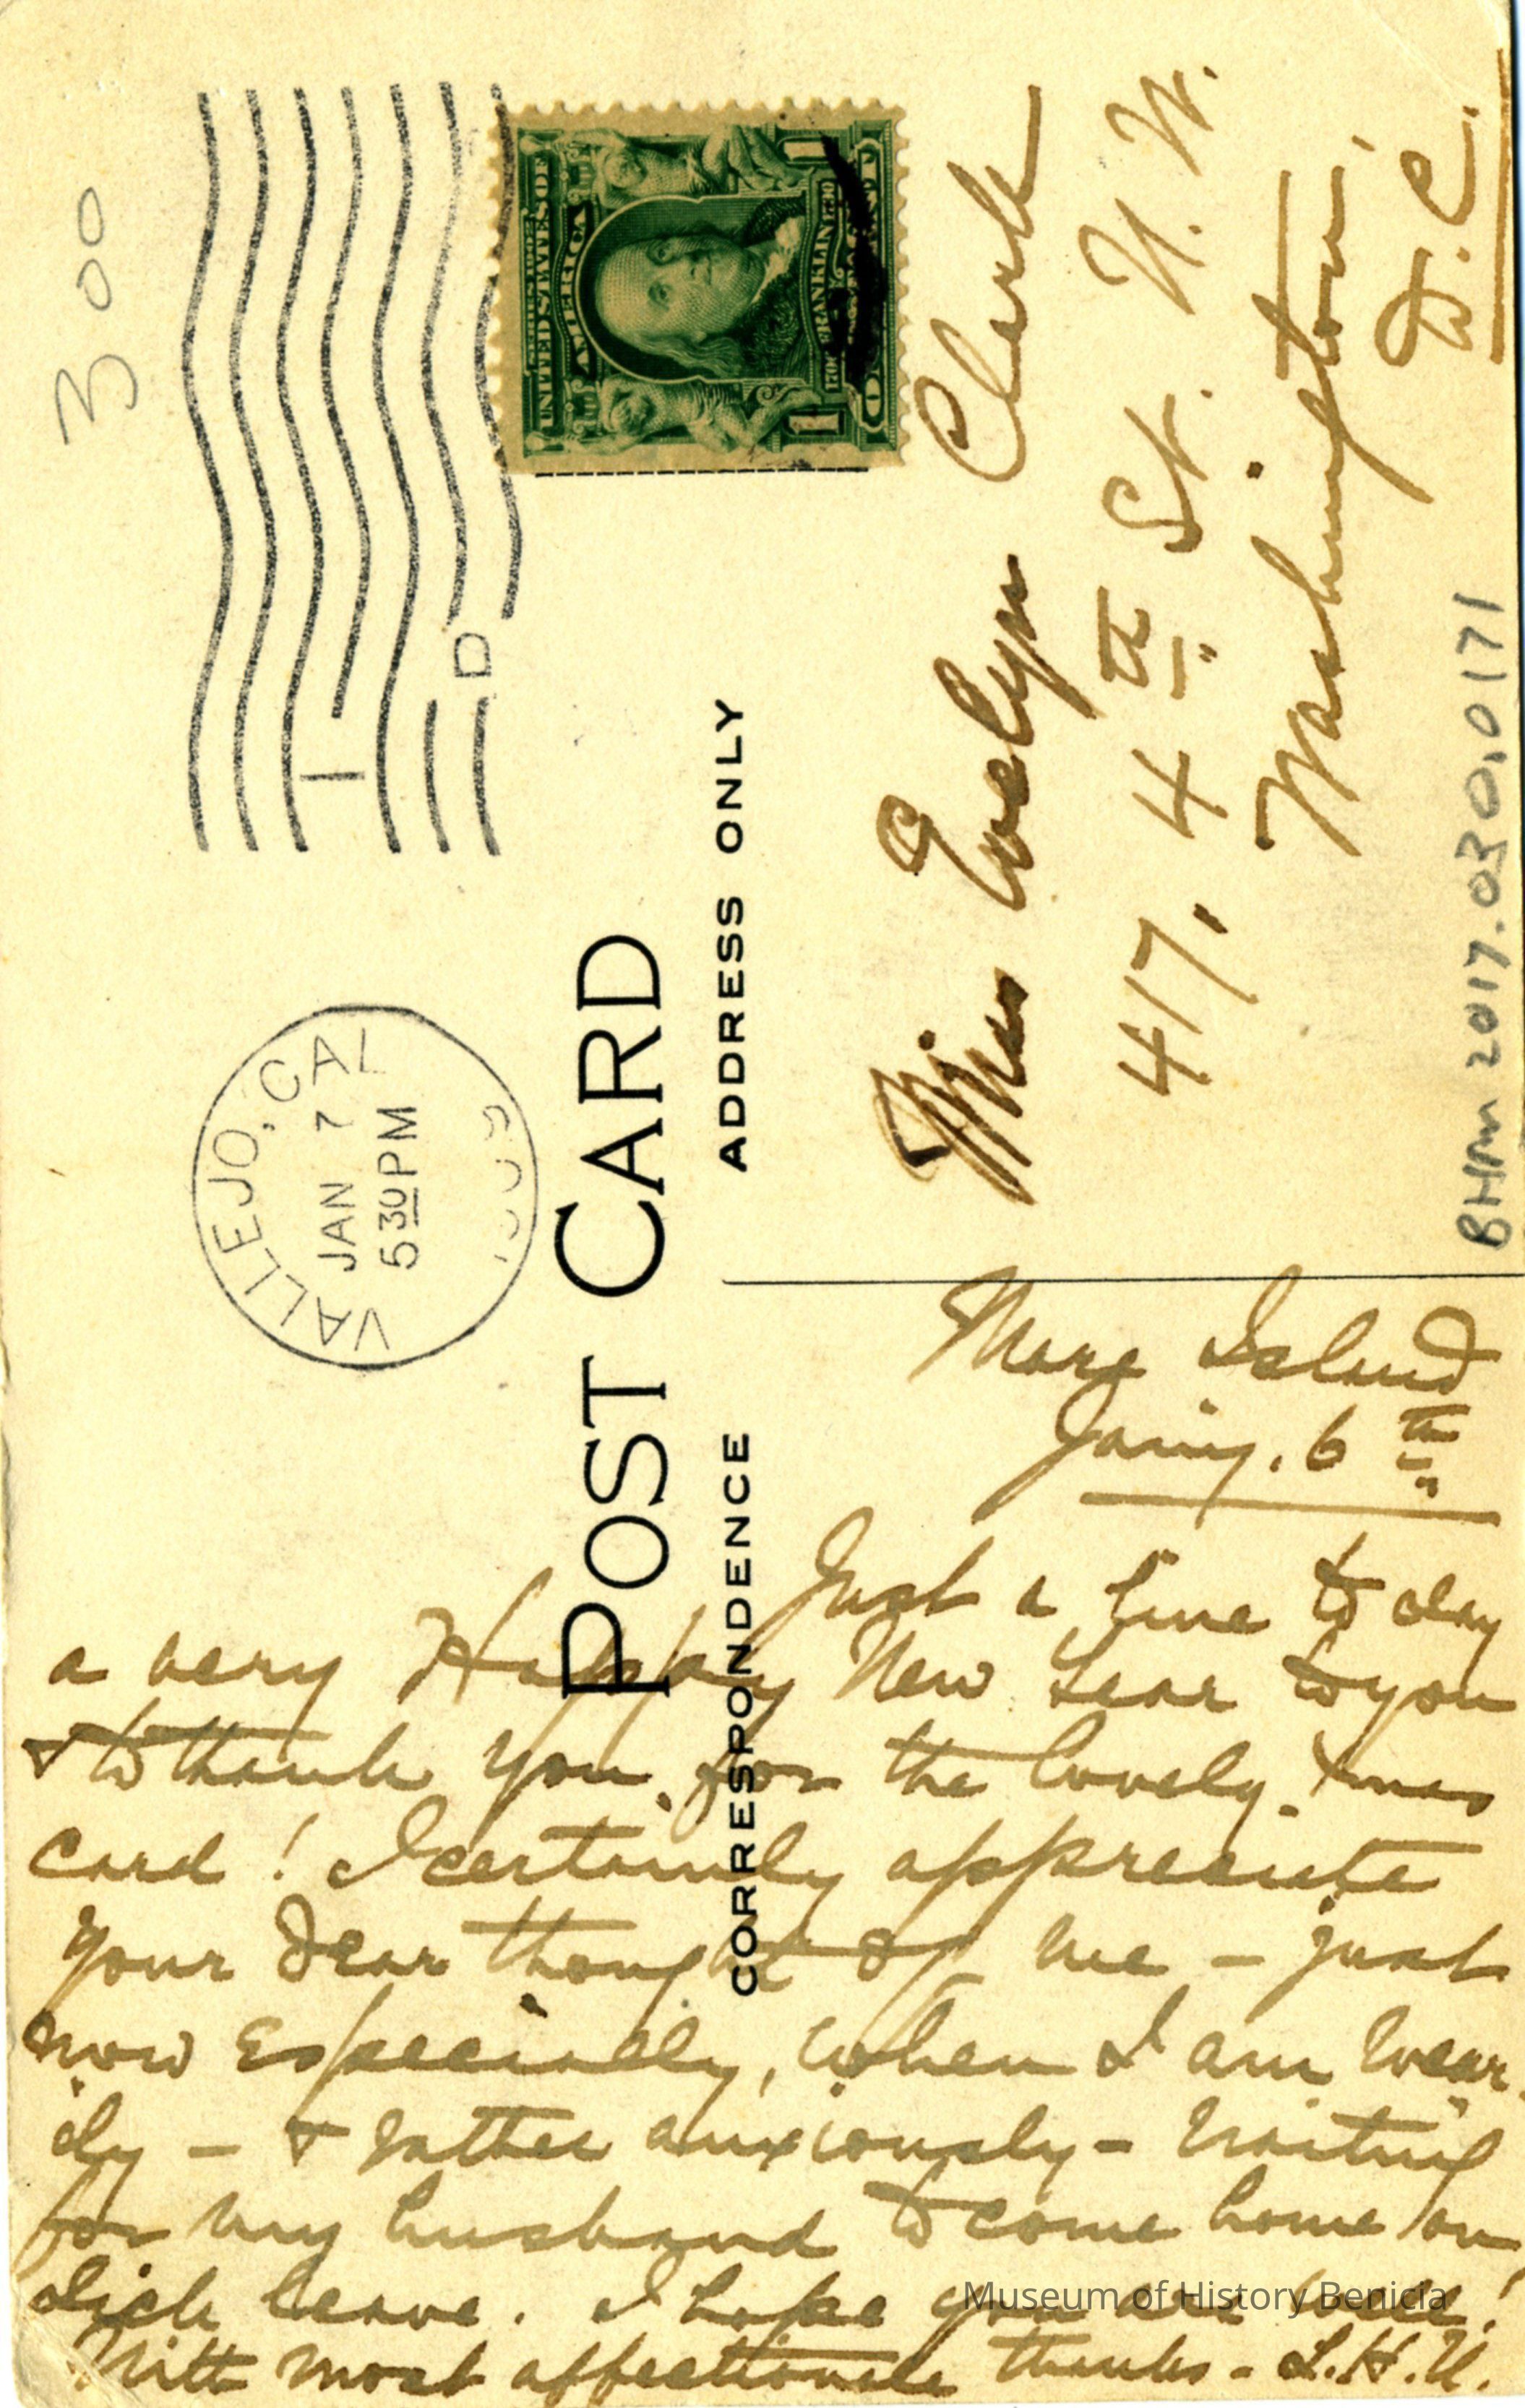 300
VALLEJO, CAL
JAN 7
530 PM
1909
1 D
SERIES 1902
UNITED STATES OF
AMERICA
1706 FRANKLIN 1790
1 1
ONE CENT
POST CARD
CORRESPONDENCE
ADDRESS ONLY
Miss Evelyn Clark
417, 4th St. N. W.
Washington,
D.C.
BHM 2017.030.0171
Mare Island
Jan'y. 6th
Just a line to say
a very Happy New Year to you
& to thank you for the lovely Xmas
card! I certainly appreciate
your dear thought of me – just
now especially, when I am wear-
ily – & rather anxiously – waiting
for my husband to come home on
sick leave. I hope you are well!
With most affectionate thanks – L.H.U.
Museum of History Benicia